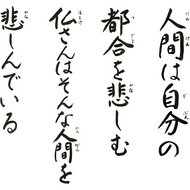 人間は自分の
都合を悲しむ
仏さんはそんな人間を
悲しんでいる